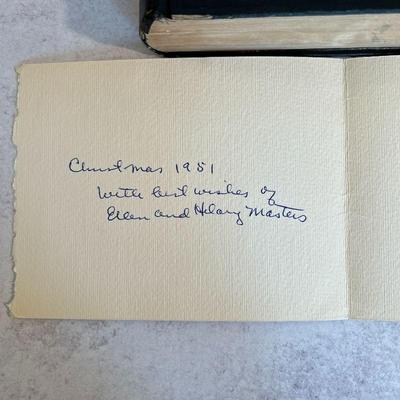 Christmas 1951
With best wishes of
Ellen and Hilary Masters